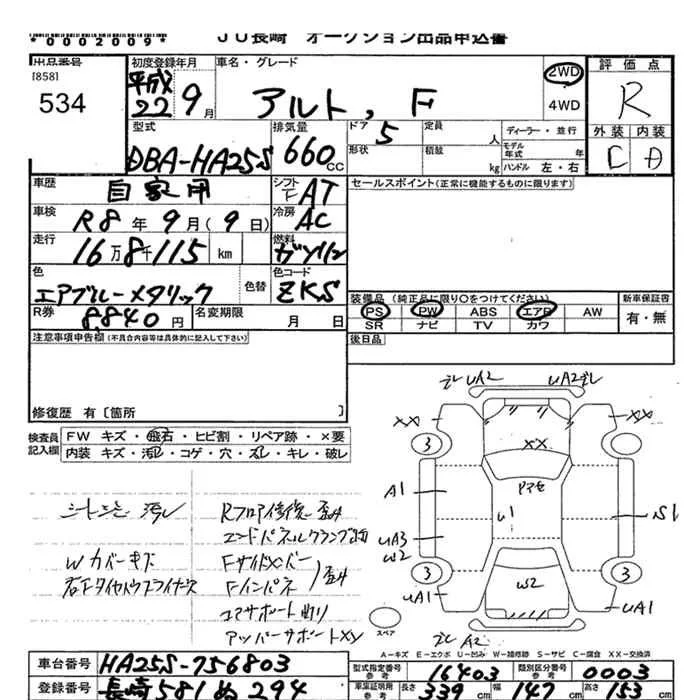 *0002009*
JU長崎 オークション出品申込書
出品番号
[858]
534
初度登録年月
平成
22 9月
車名・グレード
アルト, F
2WD
4WD
評価点
R
外装 内装
C D
型式
DBA-HA25S
排気量
660 CC
ドア 5
形状
定員 人
積載 kg
ディーラー・並行
モデル年式 年
ハンドル 左・右
車歴
自家用
シフト
F AT
セールスポイント(正常に機能するものに限ります)
車検
R8年 9月(9日)
冷房
AC
走行
16万8千115 km
燃料
ガソリン
色
エアブルーメタリック
色替
色コード
ZKS
装備品 (純正品に限り○をつけてください)
PS PW ABS エアB AW
SR ナビ TV カワ
新車保証書
有・無
R券
8,840円
名変期限
月 日
後日品
注意事項申告欄(不具合内容等は具体的に記入して下さい)
修復歴 有〔箇所 〕
検査員記入欄
FW キズ・飛石・ヒビ割・リペア跡・×要
内装 キズ・汚レ・コゲ・穴・スレ・キレ・破レ
Wカバーキズ
右Fタイヤハウスライナー欠
Rフロア修復 歪み
エンドパネルクランプ跡
Fサイドメンバー
Fインパネ
歪み
コアサポート曲り
アッパーサポートXX
UA2 UA2
XX XX
3
XX
A1
U1
S1
UA3
W2
3 3
W2
UA1 UA1
A2
スペア
A-キズ E-エクボ U-凹み W-補修跡 S-サビ C-腐食 XX-交換済
車台番号
HA25S-756803
登録番号
長崎 581 ぬ 294
型式指定番号
参考
16403
類別区分番号
参考
0003
車庫証明用
参考
長さ 339 cm
幅 147 cm
高さ 153 cm